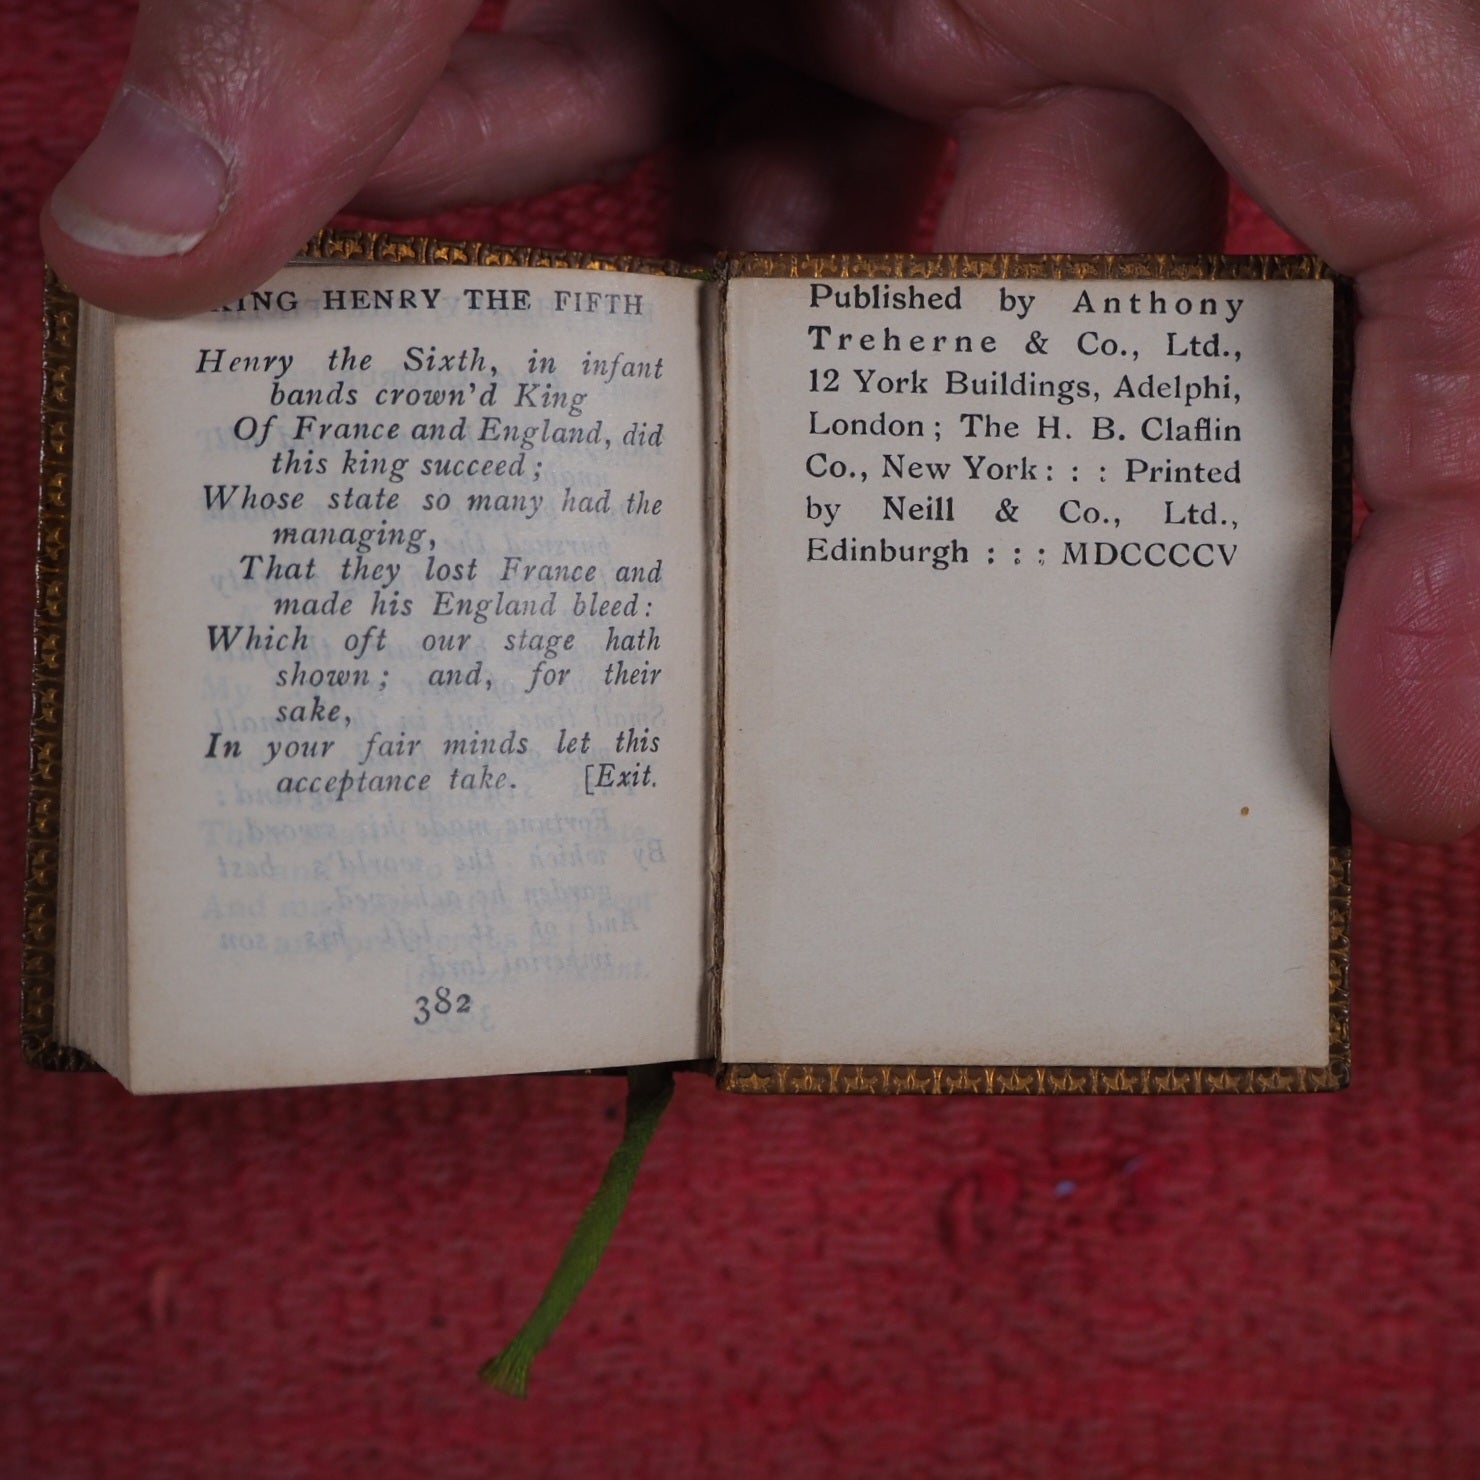 KING HENRY THE FIFTH
Henry the Sixth, in infant
bands crown'd King
Of France and England, did
this king succeed;
Whose state so many had the
managing,
That they lost France and
made his England bleed:
Which oft our stage hath
shown; and, for their
sake,
In your fair minds let this
acceptance take. [Exit.
382
Published by Anthony
Treherne & Co., Ltd.,
12 York Buildings, Adelphi,
London; The H. B. Claflin
Co., New York: : : Printed
by Neill & Co., Ltd.,
Edinburgh : : : MDCCCCV